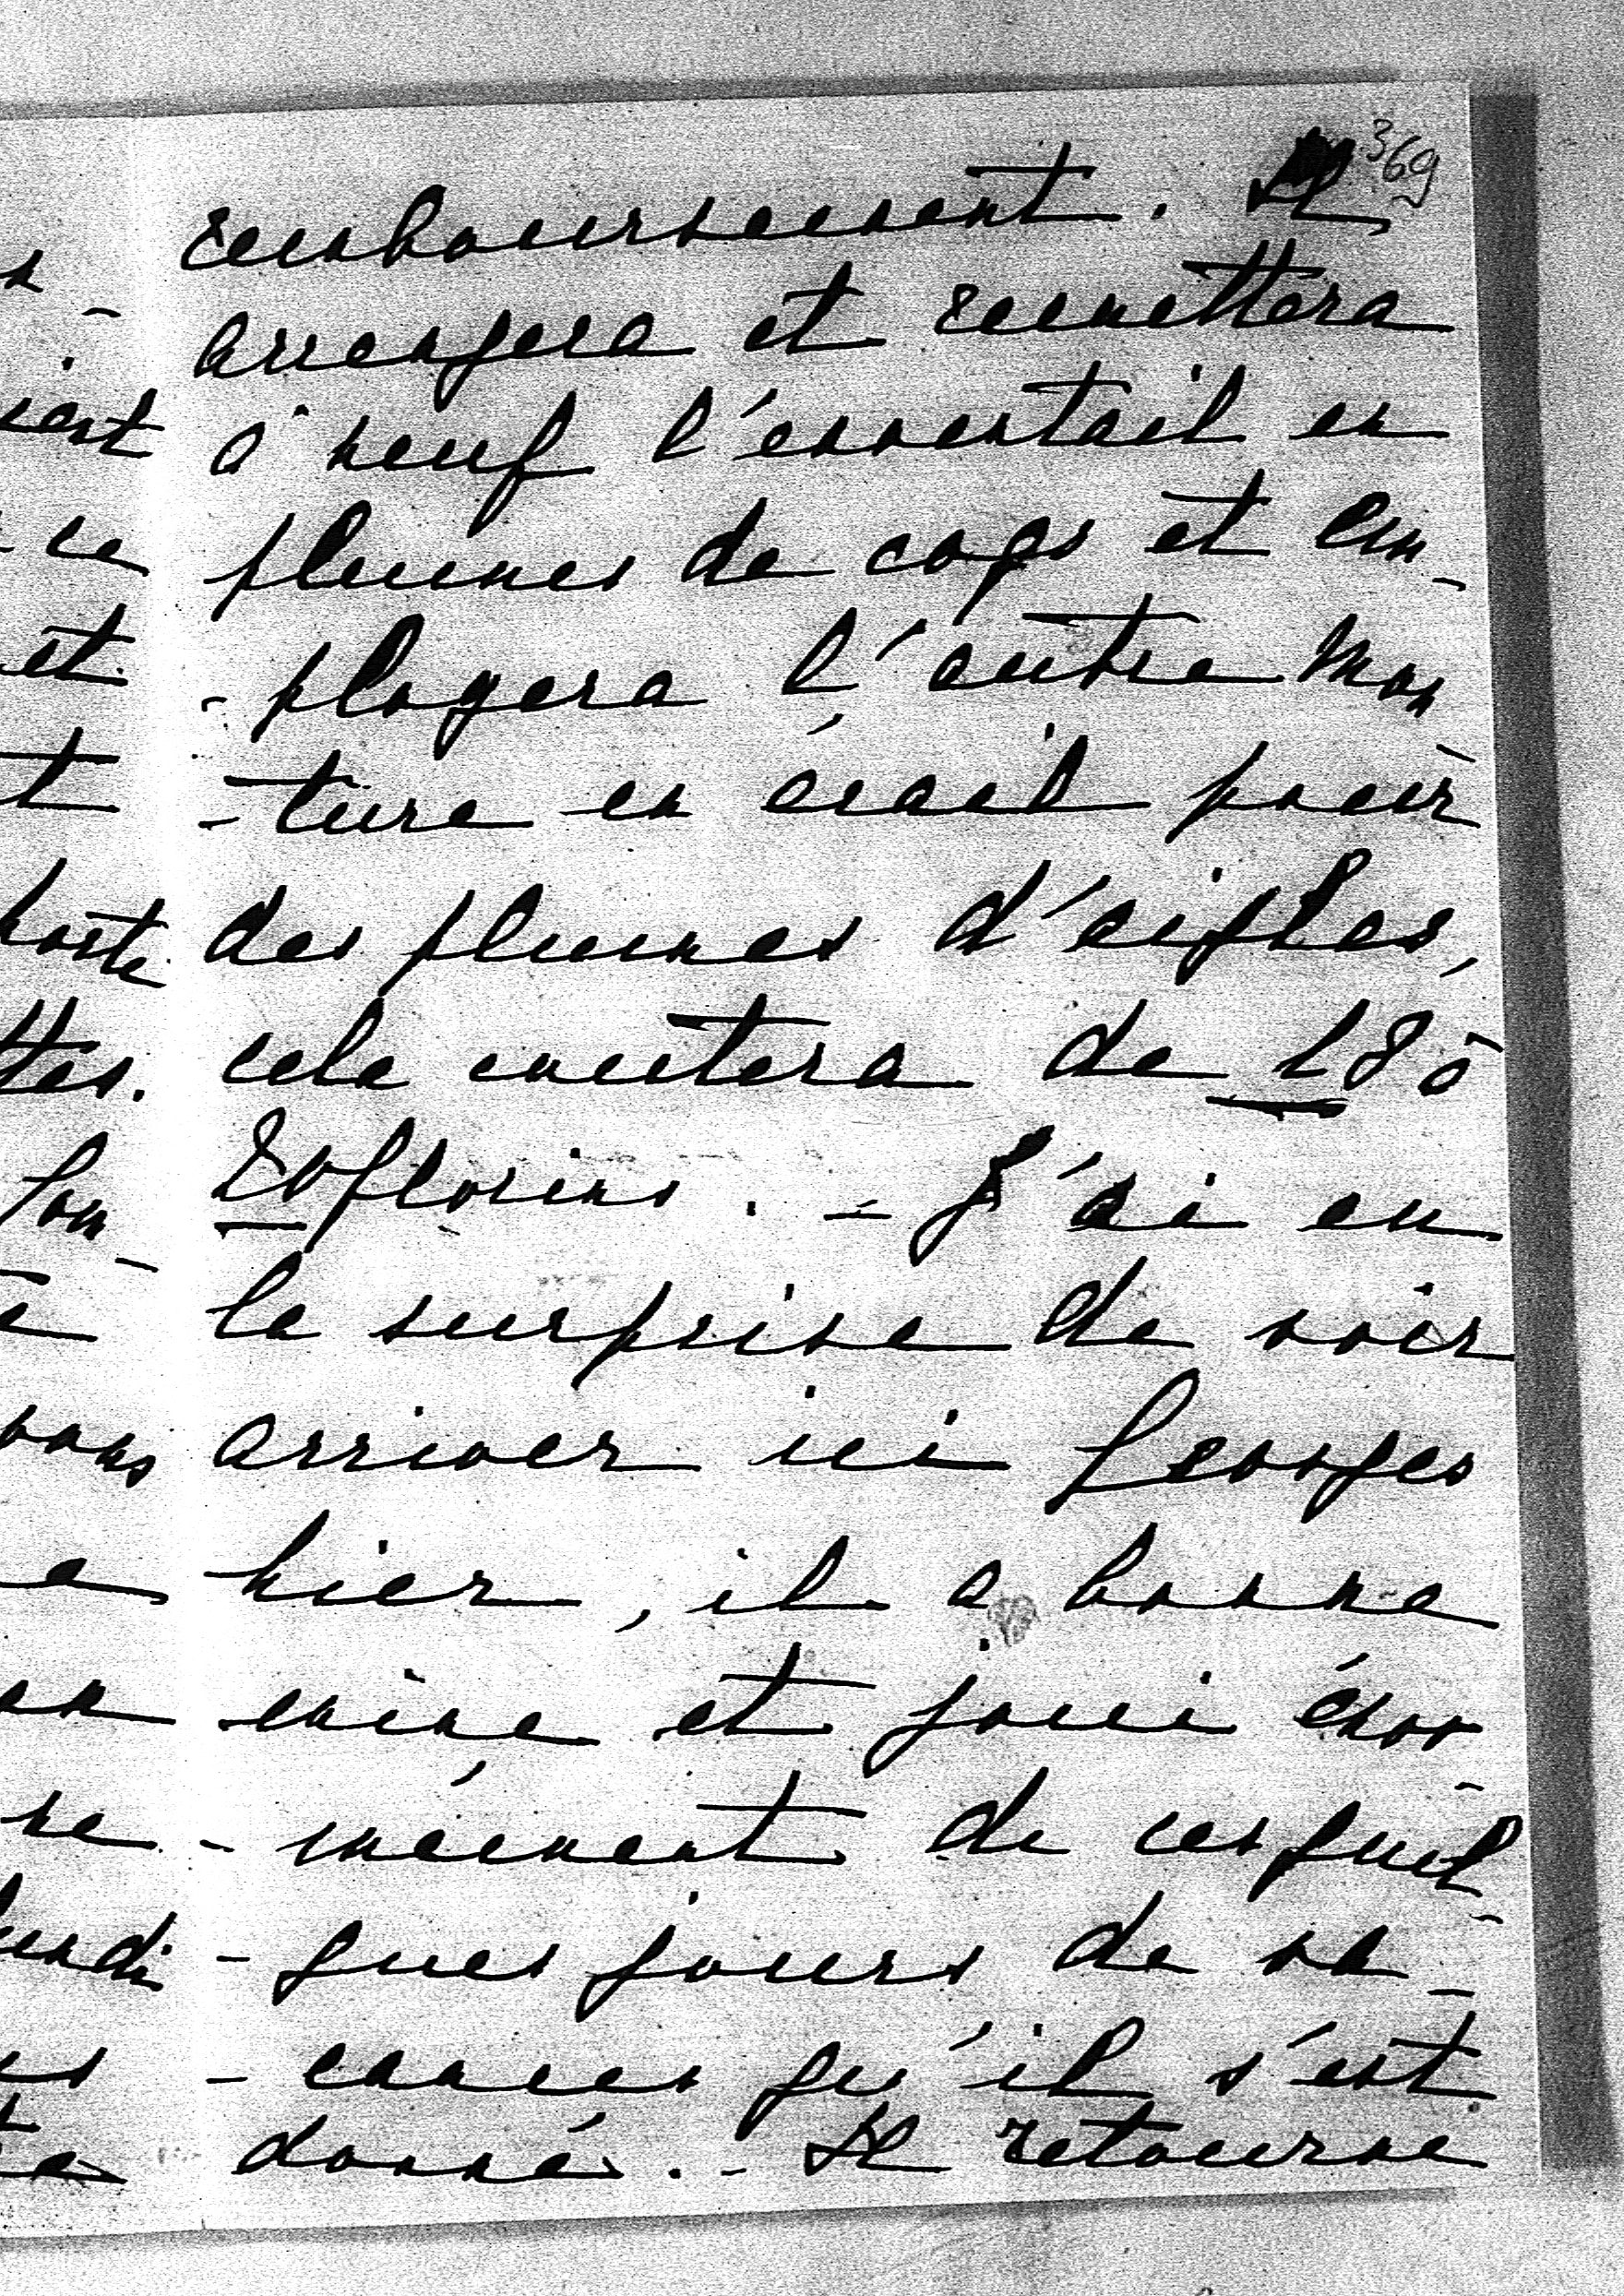 369
remboursement. Il
arrengera et remettera
à neuf l'éventail en
plumes de coqs et em-
-ployera l'autre mon-
-ture en écail pour
des plumes d'aigles,
cela coutera de 18 à
20 florins. - J'ai eu
la surprise de voir
arriver ici Georges
hier, il a bonne
mine et joui énor-
-mément de ces quel-
-ques jours de va-
-cances qu'il s'est
donné. - Il retourne